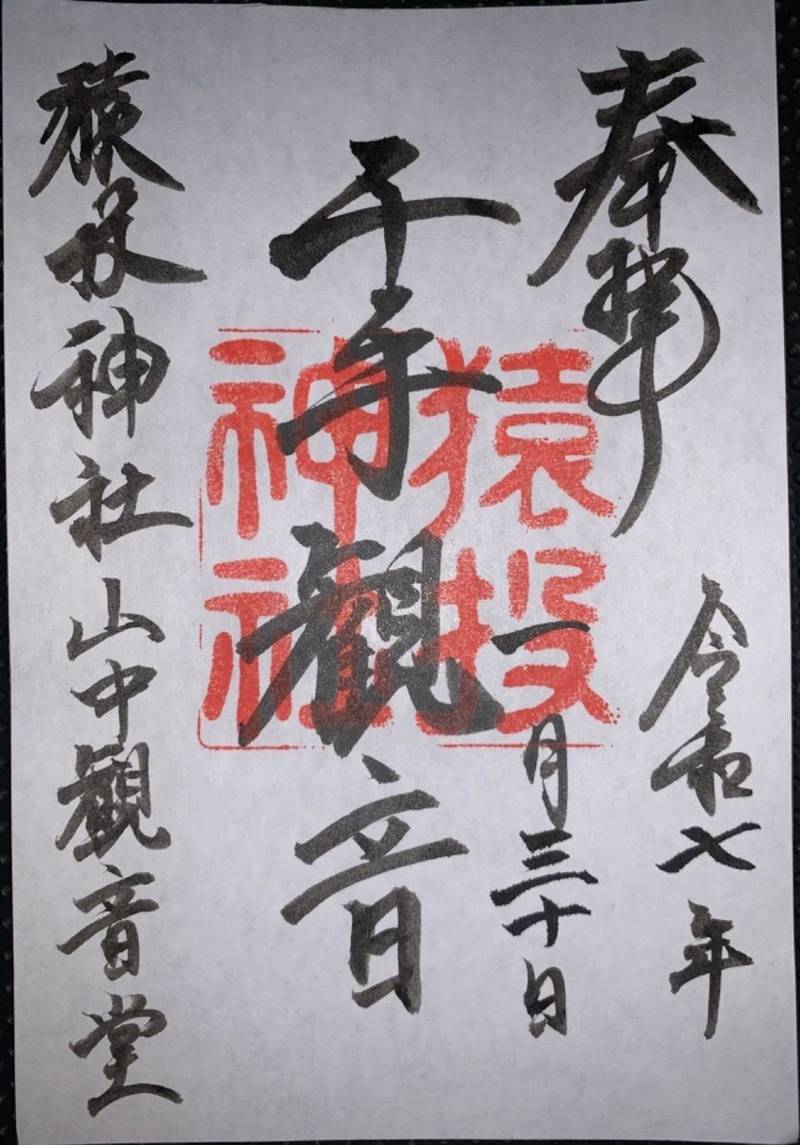 奉拝
令和七年
一月三十日
千手觀音
猿投神社
猿投神社山中觀音堂